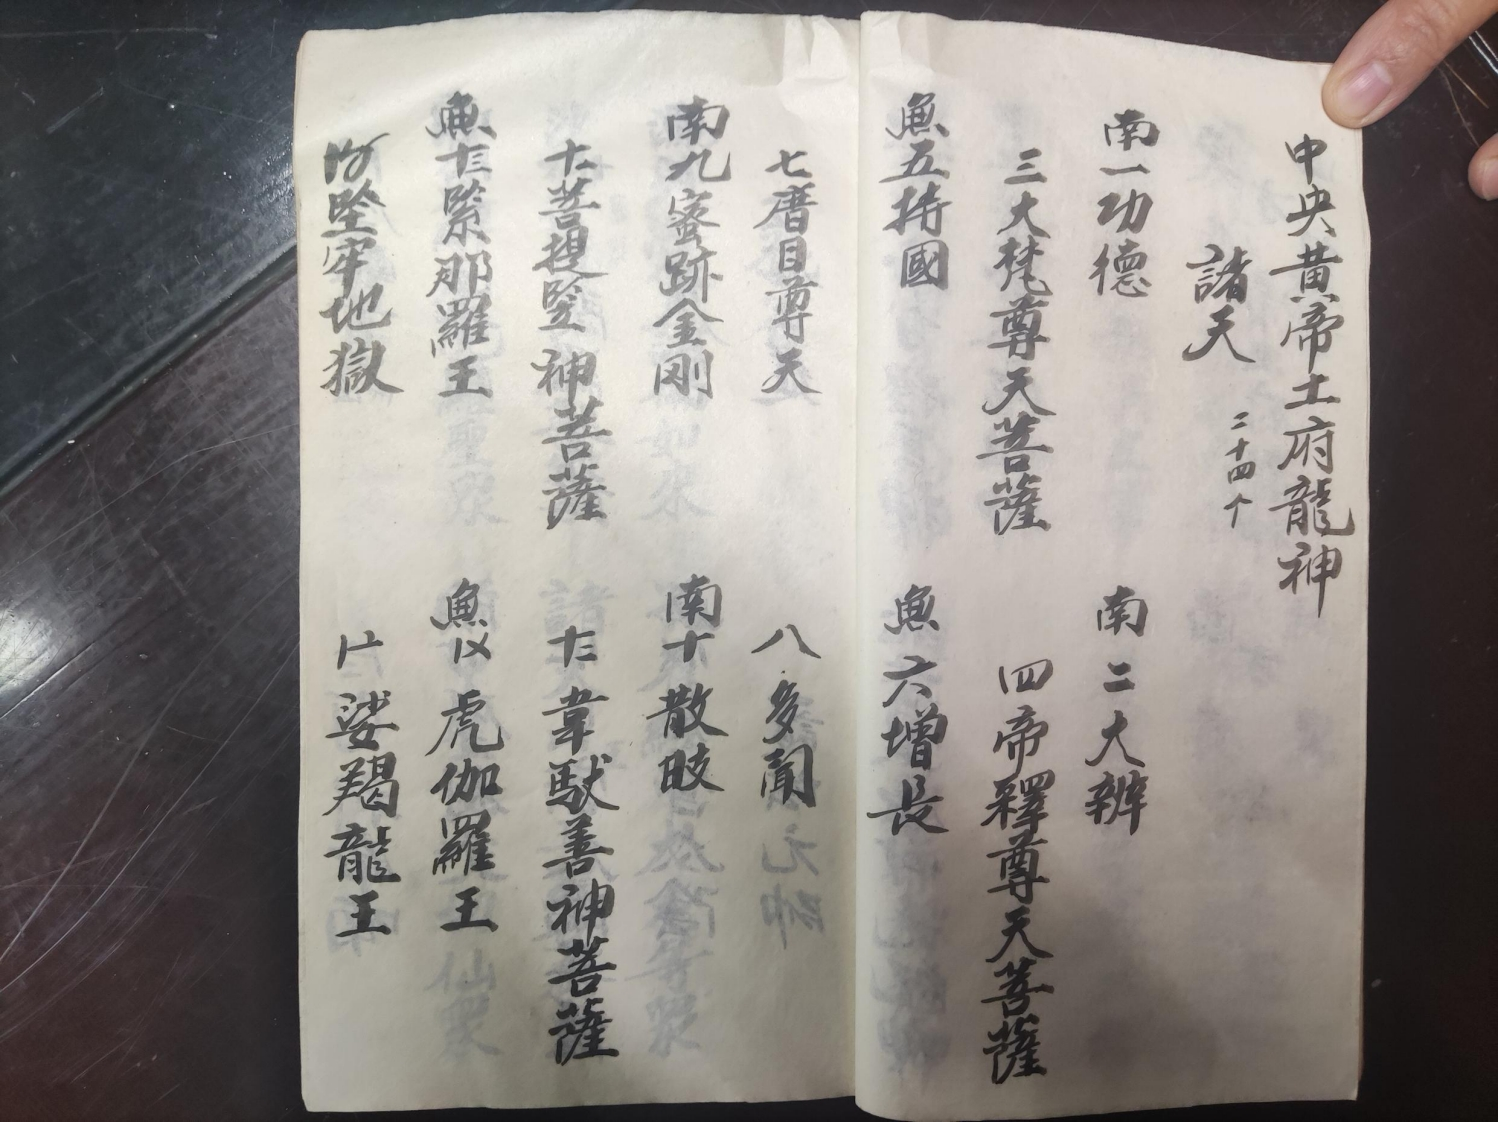 中央黃帝土府龍神
諸天 二十四个
南一功德
南二大辨
三大梵尊天菩薩
四帝釋尊天菩薩
魚五持國
魚六增長
七曆目尊天
八多聞
南九密跡金刚
南十散眩
十一菩提竪神菩薩
十二韋馱善神菩薩
魚十三緊那羅王
魚〤虎伽羅王
堅牢地獄
娑羯龍王